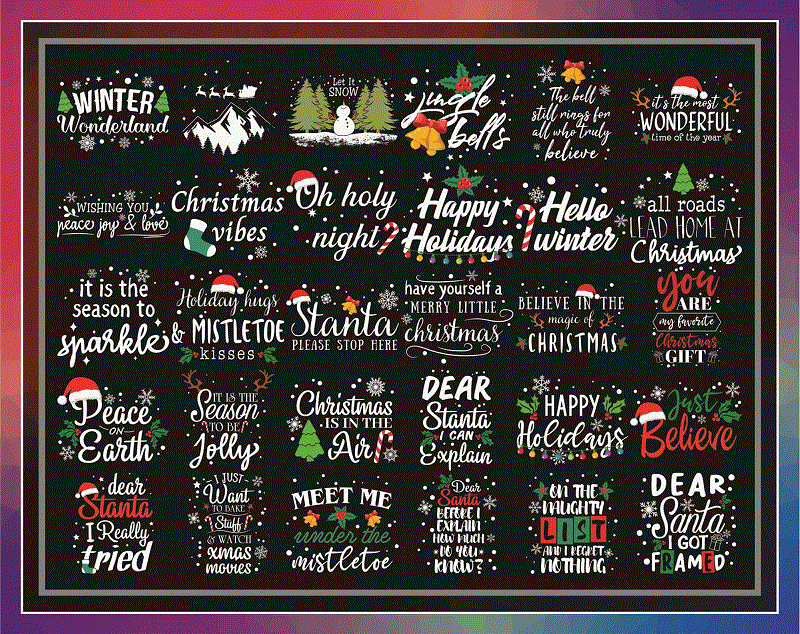 WINTER
Wonderland
Let It
SNOW
jingle
bells
The bell
still rings for
all who truly
believe
it's the most
WONDERFUL
time of the year
WISHING YOU
peace joy & love
Christmas
vibes
Oh holy
night
Happy
Holidays
Hello
winter
all roads
LEAD HOME AT
Christmas
it is the
season to
sparkle
Holiday hugs
& MISTLETOE
kisses
Stanta
PLEASE STOP HERE
have yourself a
MERRY LITTLE
christmas
BELIEVE IN THE
magic of
CHRISTMAS
you
ARE
my favorite
Christmas
GIFT
Peace
ON
Earth
IT IS THE
Season
TO BE
Jolly
Christmas
IS IN THE
Air
DEAR
Stanta
I CAN
Explain
HAPPY
Holidays
Just
Believe
dear
Stanta
I Really
tried
I JUST
Want
TO BAKE
Stuff
& WATCH
xmas
movies
MEET ME
under the
mistletoe
Dear
Santa
BEFORE I
EXPLAIN
HOW MUCH
DO YOU
KNOW?
ON THE
NAUGHTY
LIST
AND I REGRET
NOTHING
DEAR
Santa
I GOT
FRAMED